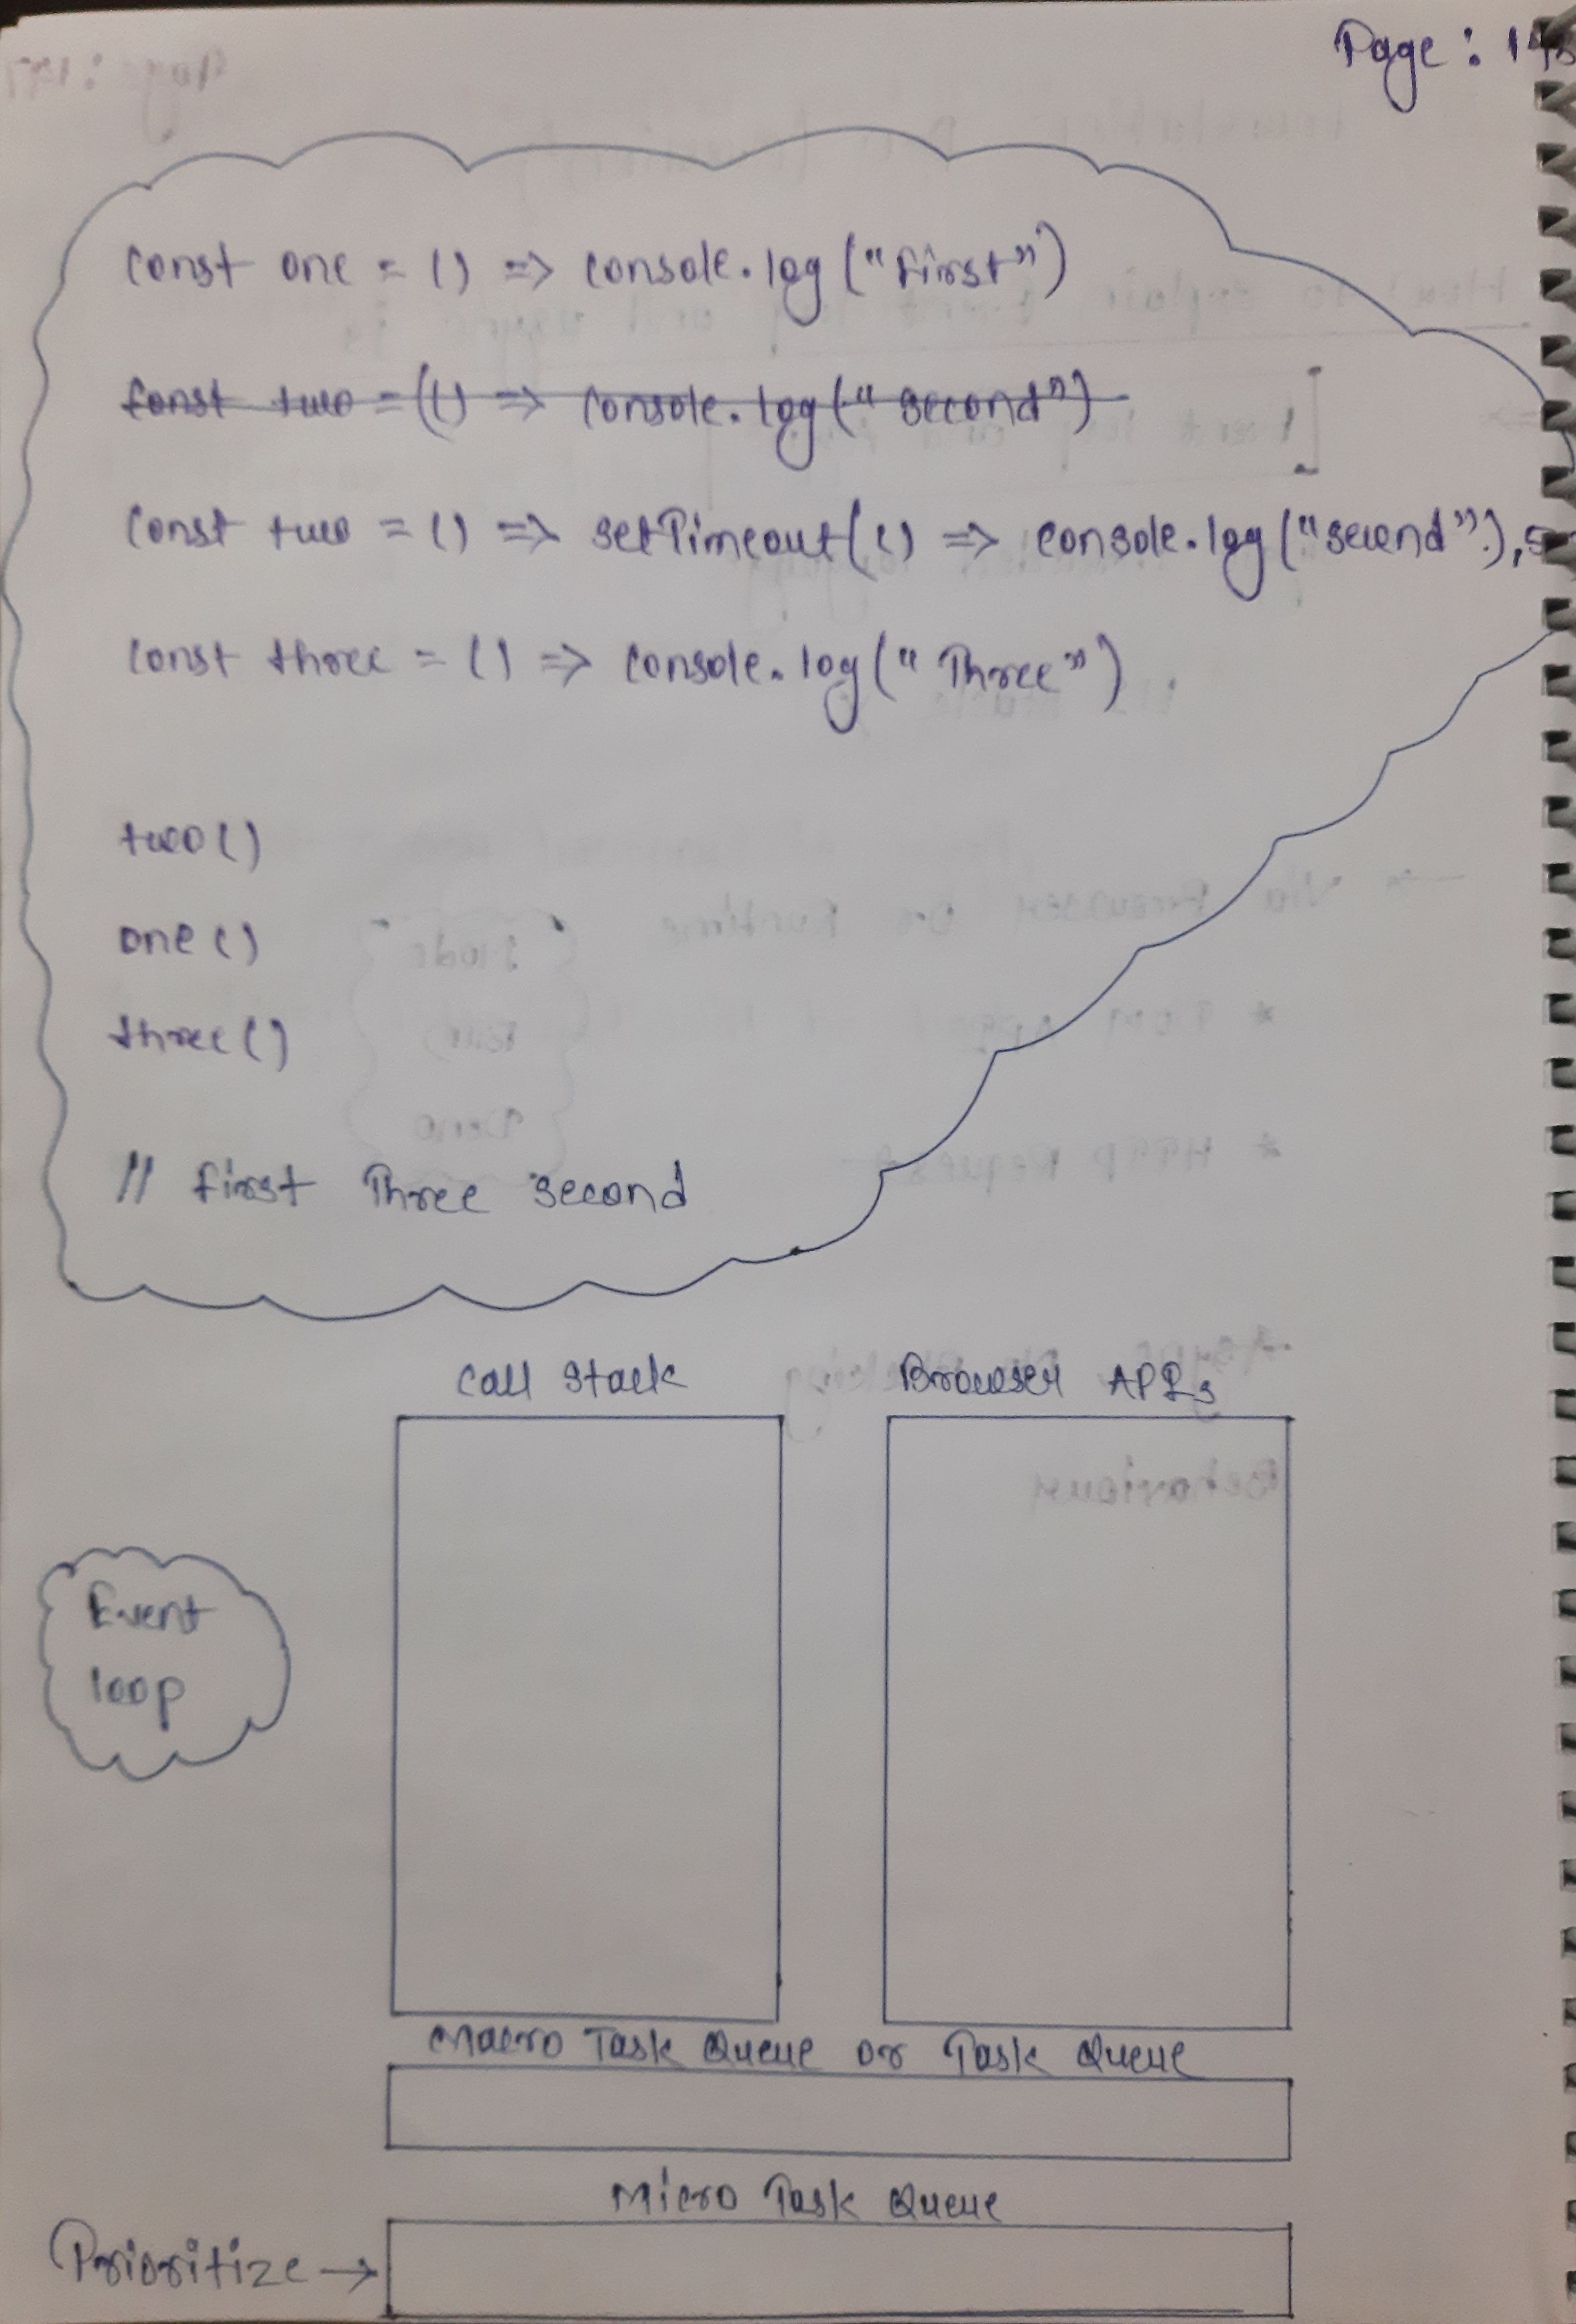 Page : 148
const one = () => console.log("First")
const two = () => console.log("second")
const two = () => setTimeout(() => console.log("second"), 5
const three = () => console.log("Three")
two()
one()
three()
// First Three second
Call Stack Browser APIs
Event
loop
Macro Task Queue or Task Queue
Micro Task Queue
Prioritize →